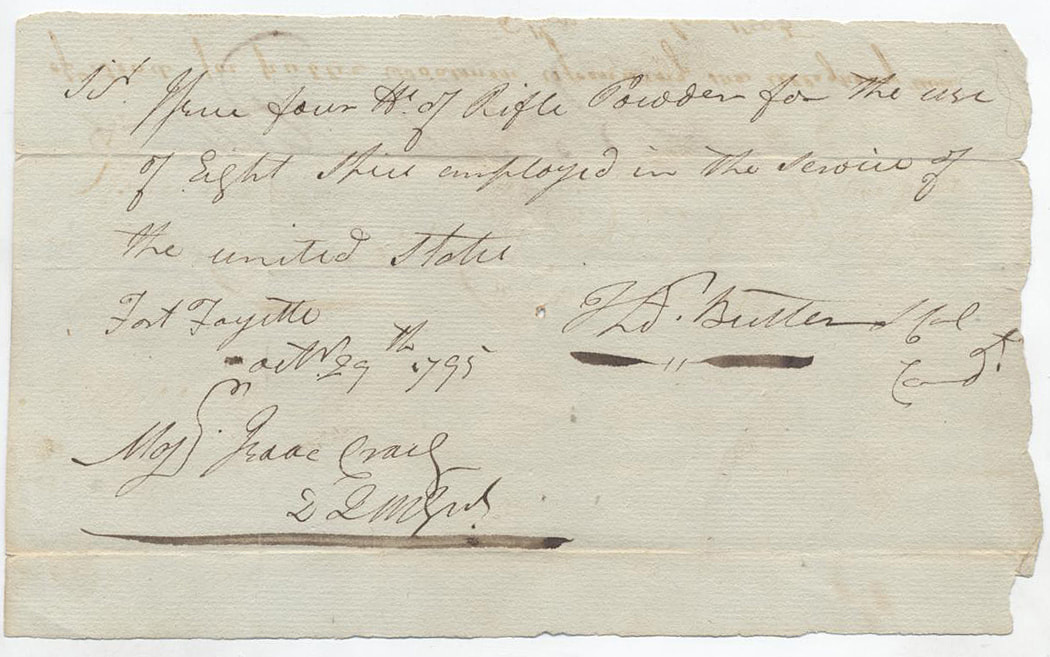 Sr. Issue four lbs. of Rifle Powder for the use
of Eight employed in the service of
the united States
Fort Fayette
octbr. 29th 1795
Thos. Butler Lt Col
Comdt.
Majr. Isaac Craig
D Q M Genl